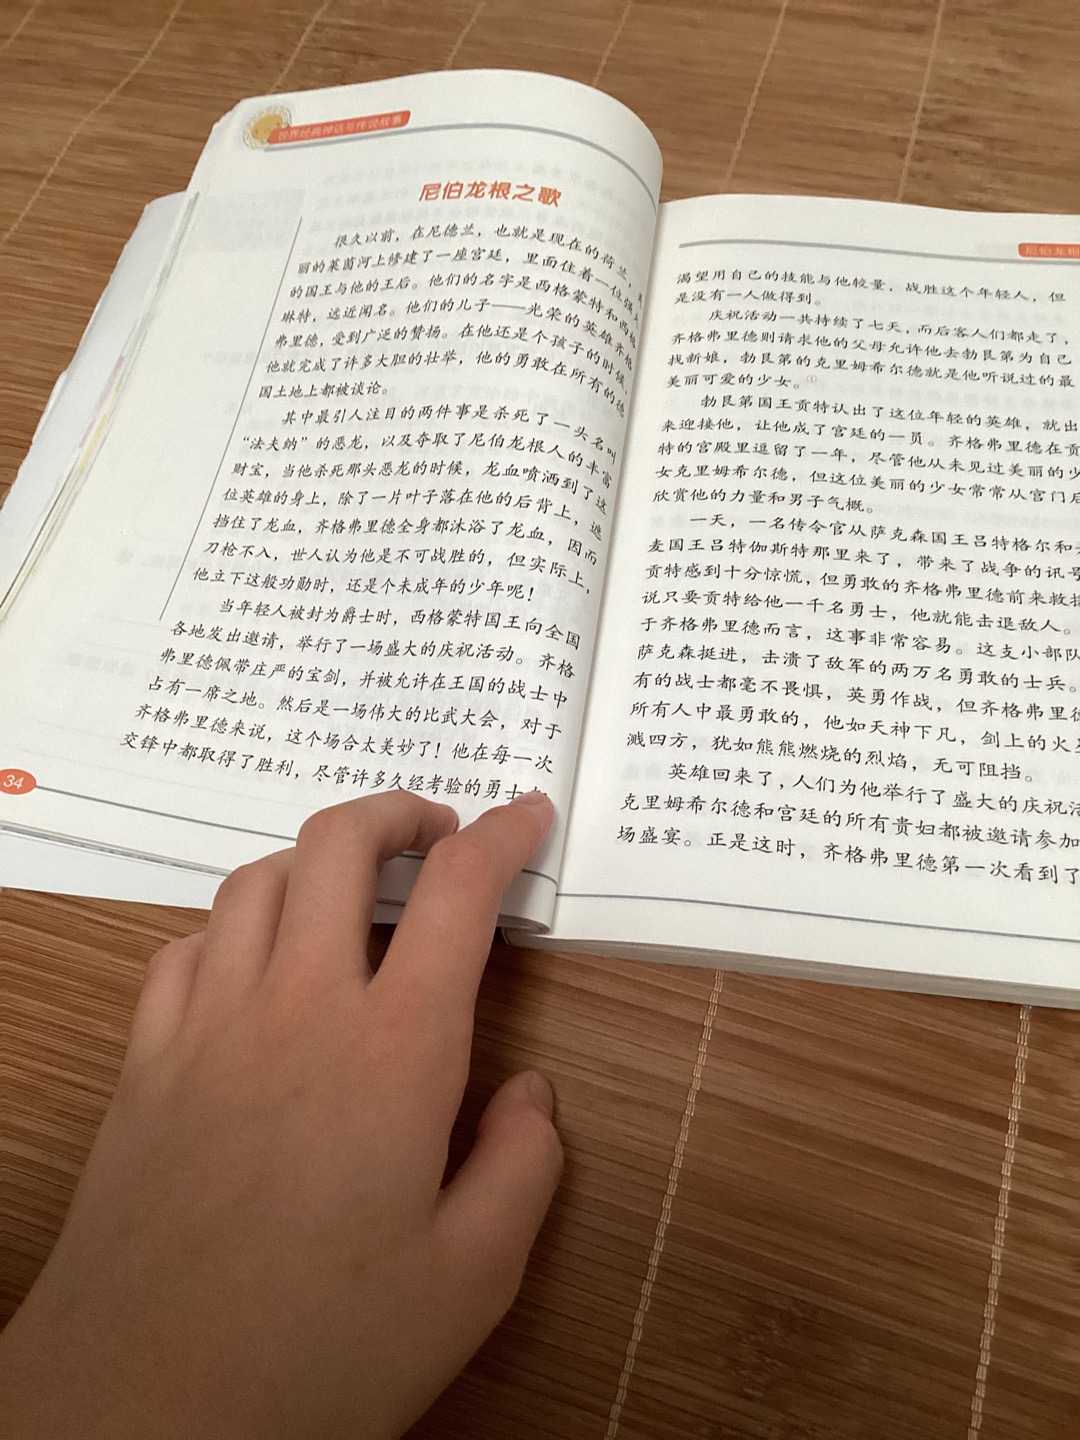 世界经典神话与传说故事
尼伯龙根之歌
很久以前，在尼德兰，也就是现在的荷兰，
丽的莱茵河上修建了一座宫廷，里面住着一位强
的国王与他的王后。他们的名字是西格蒙特和西格
琳特，远近闻名。他们的儿子——光荣的英雄齐格
弗里德，受到广泛的赞扬。在他还是个孩子的时候，
他就完成了许多大胆的壮举，他的勇敢在所有的德
国土地上都被谈论。
其中最引人注目的两件事是杀死了一头名叫
“法夫纳”的恶龙，以及夺取了尼伯龙根人的丰富
财宝，当他杀死那头恶龙的时候，龙血喷洒到了这
位英雄的身上，除了一片叶子落在他的后背上，遮
挡住了龙血，齐格弗里德全身都沐浴了龙血，因而
刀枪不入，世人认为他是不可战胜的，但实际上，
他立下这般功勋时，还是个未成年的少年呢！
当年轻人被封为爵士时，西格蒙特国王向全国
各地发出邀请，举行了一场盛大的庆祝活动。齐格
弗里德佩带庄严的宝剑，并被允许在王国的战士中
占有一席之地。然后是一场伟大的比武大会，对于
齐格弗里德来说，这个场合太美妙了！他在每一次
交锋中都取得了胜利，尽管许多久经考验的勇士
34
尼伯龙根
渴望用自己的技能与他较量，战胜这个年轻人，但
是没有一人做得到。
庆祝活动一共持续了七天，而后客人们都走了，
齐格弗里德则请求他的父母允许他去勃艮第为自己
找新娘，勃艮第的克里姆希尔德就是他听说过的最
美丽可爱的少女。①
勃艮第国王贡特认出了这位年轻的英雄，就出
来迎接他，让他成了宫廷的一员。齐格弗里德在贡
特的宫殿里逗留了一年，尽管他从未见过美丽的少
女克里姆希尔德，但这位美丽的少女常常从宫门后
欣赏他的力量和男子气概。
一天，一名传令官从萨克森国王吕特格尔和
麦国王吕特伽斯特那里来了，带来了战争的讯号
贡特感到十分惊慌，但勇敢的齐格弗里德前来救援
说只要贡特给他一千名勇士，他就能击退敌人。
于齐格弗里德而言，这事非常容易。这支小部队
萨克森挺进，击溃了敌军的两万名勇敢的士兵。
有的战士都毫不畏惧，英勇作战，但齐格弗里德
所有人中最勇敢的，他如天神下凡，剑上的火星
溅四方，犹如熊熊燃烧的烈焰，无可阻挡。
英雄回来了，人们为他举行了盛大的庆祝活
克里姆希尔德和宫廷的所有贵妇都被邀请参加
场盛宴。正是这时，齐格弗里德第一次看到了